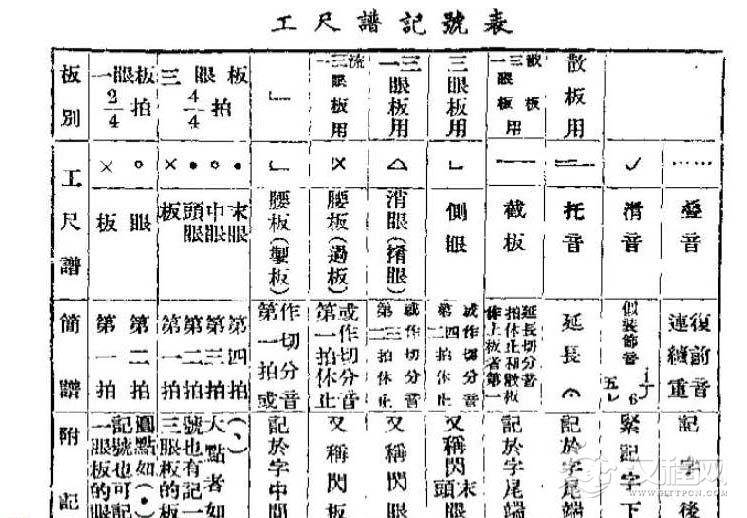 工尺譜記號表
板別
一眼板 2/4 拍
三眼板 4/4 拍
一三流眼板用
一三眼板用
三眼板用
一三散眼板板用
散板用
工尺譜
× 板
○ 眼
× 板
• 頭眼
○ 中眼
• 末眼
腰板(製板)
腰板(過板)
消眼(撍眼)
側眼
截板
托音
滑音
疊音
簡譜
第一拍
第二拍
第一拍
第二拍
第三拍
第四拍
作切分音第一拍或
或作切分音第一拍休止
或作切分音第二三拍休止
或作切分音第二四拍休止
延長切分音
拍休止和散板
作上板者第一
延長
似裝飾音
五 i 6
復前音連續重
附記
圓點如(•)
記號也可記
一眼板的眼
(、)
大點者如
號也有記一
三眼板的板
記於字中間
又稱閃板
又稱閃眼
又稱閃末頭眼
記於字尾端
記於字尾端
緊記字下
記字後